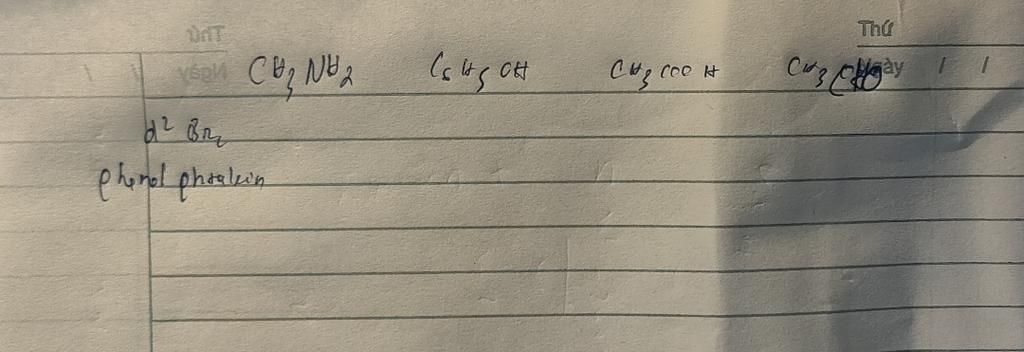 Thứ
Ngày / /
CH3NH2 C6H5OH CH3COOH CH3CHO
d² Br2
phenol phtalein